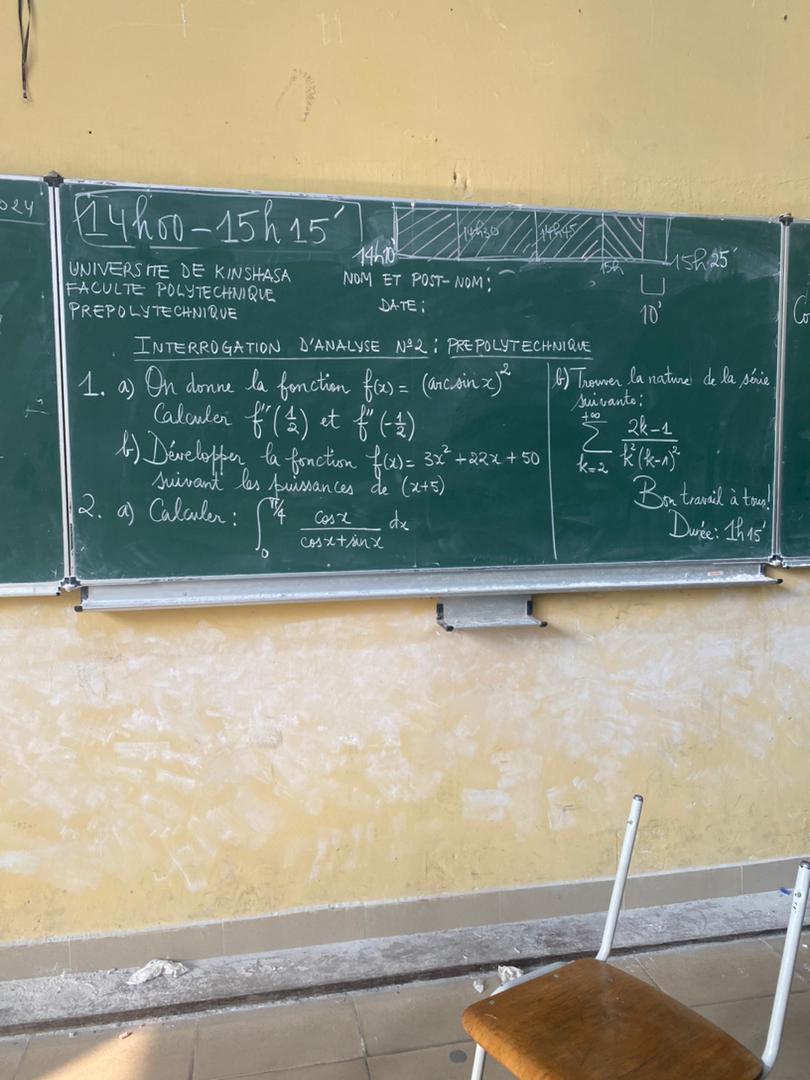 024
14h00 - 15h 15'
14h30 14h45
14h10' 15h 15h 25'
10'
UNIVERSITE DE KINSHASA
FACULTE POLYTECHNIQUE
PREPOLYTECHNIQUE
NOM ET POST-NOM:
DATE:
INTERROGATION D'ANALYSE N°2 : PREPOLYTECHNIQUE
1. a) On donne la fonction f(x) = (arc sin x)²
Calculer f''(1/2) et f''(-1/2)
b) Développer la fonction f(x) = 3x² + 22x + 50
suivant les puissances de (x+5)
2. a) Calculer : ∫₀^{π/4} cos x / (cos x + sin x) dx
b) Trouver la nature de la série
suivante:
∑_{k=2}^{+∞} (2k-1) / (k²(k-1)²)
Bon travail à tous!
Durée: 1h 15'
Co